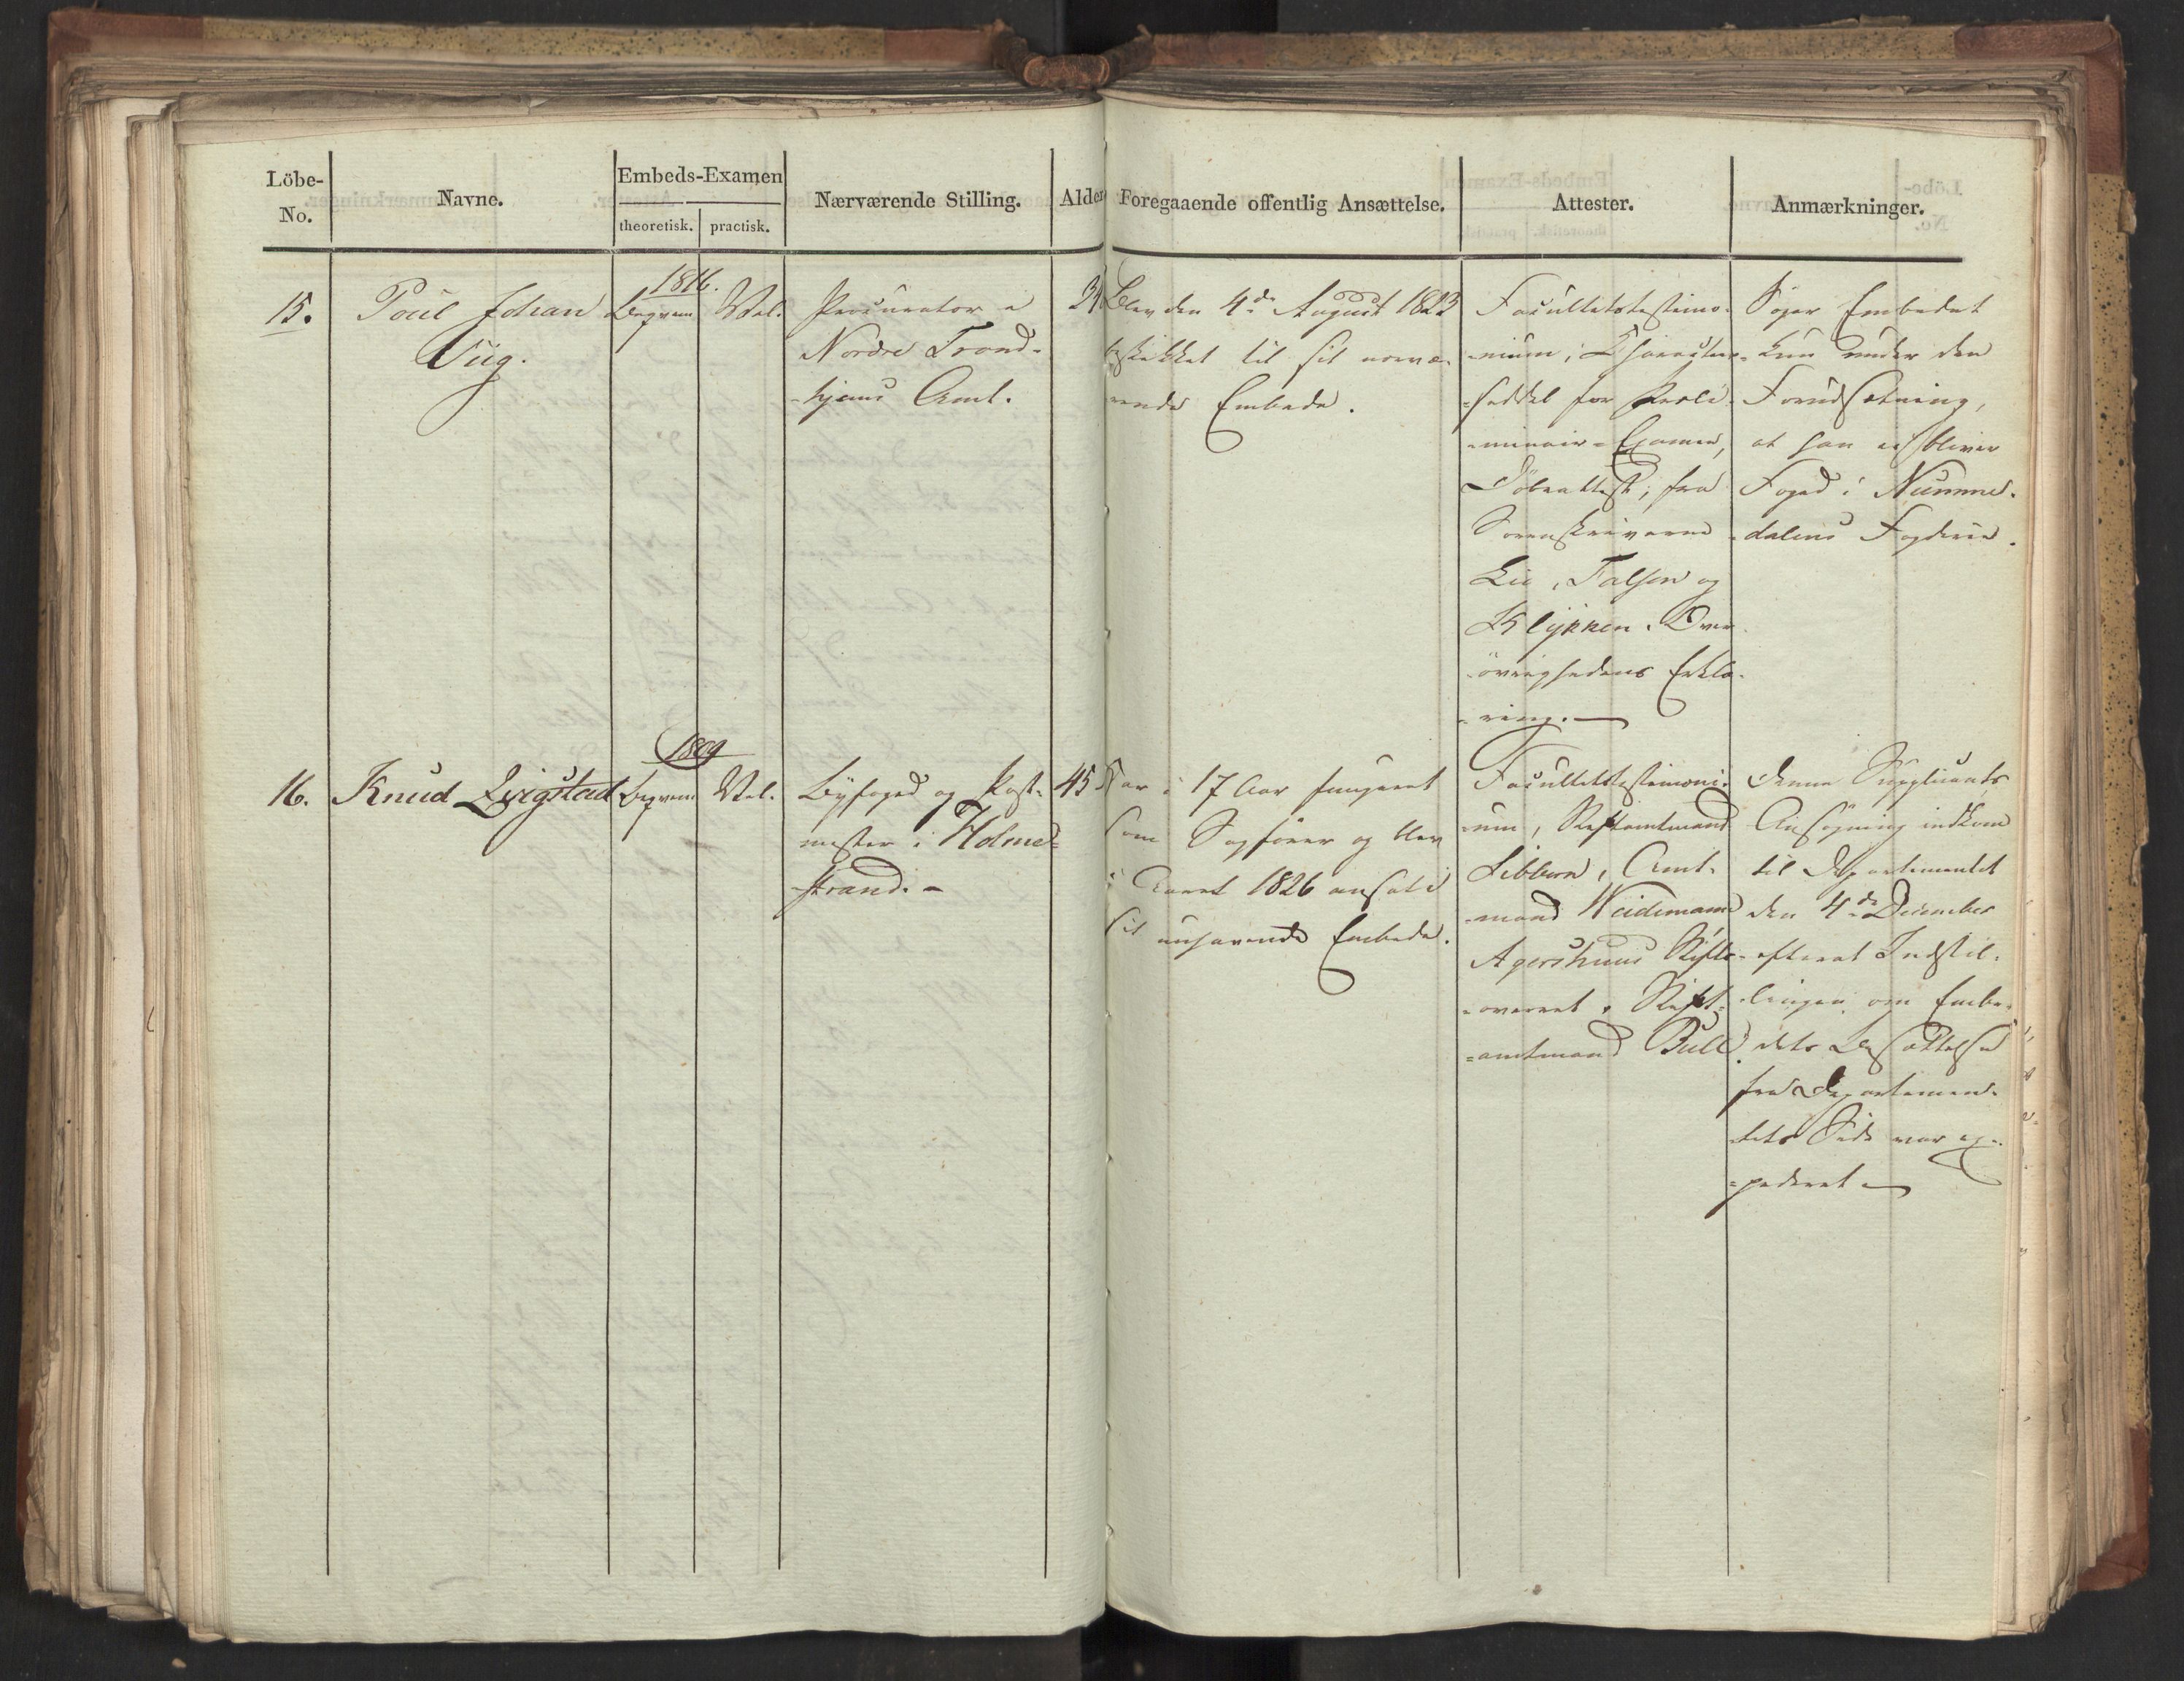 Löbe-
No.
Navne.
Embeds-Examen
theoretisk.
practisk.
Nærværende Stilling.
Alder
Foregaaende offentlig Ansættelse.
Attester.
Anmærkninger.
15.
Poul Johan
Viig.
1816.
Beqvem
Vel.
Procurator i
Nordre Trond-
-hjems Amt.
Blev den 4de August 1823
beskikket til sit nærvæ-
rende Embede.
Facultetstestimo-
-nium; Characteer-
-seddel for Præli-
-minair-Examen,
Döbeattest; fra
Sorenskriverne
Lie, Falsen og
Klykken. Over-
-övrighedens Erklæ-
-ring.
Söger Embedet
kun under den
Forudsætning,
at han ei bliver
Foged i Numme-
-dalens Fogderie.
16.
Knud Lyigstad
1809
Beqvem
Vel.
Byfoged og Post-
mester i Holme-
-strand.-
45
Har i 17 Aar fungeret
som Sagförer og blev
i Aaret 1826 ansat i
sit nuhavende Embede.
Facultetstestimoni-
-um, Stiftamtmand
Sibbern, Amt-
-mand Weidemann
Agershuus Stifts-
-overret, Stift-
-amtmand Bull.
Denne Supplicants
Ansögning indkom
til Departementet
den 4de December
efterat Indstil-
-lingen om Embe-
-dets Besættelse
fra Departemen-
-tets Side var ex-
-pederet